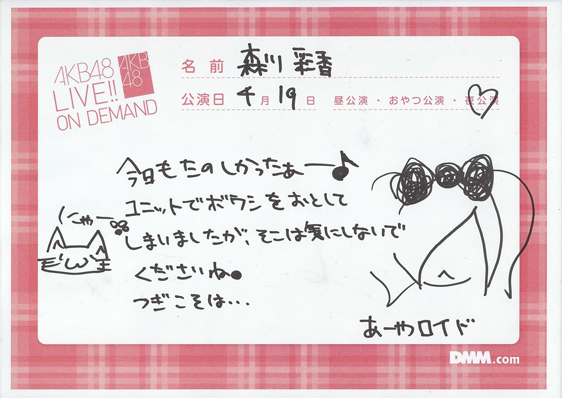 AKB48
LIVE!!
ON DEMAND
AKB
48
名前 森川彩香
公演日 4月19日 昼公演・おやつ公演・夜公演
今日もたのしかったぁー♪
ユニットでボウシをおとして
しまいましたが、そこは気にしないで
くださいね
つぎこそは…
にゃー
あーやロイド
DMM.com